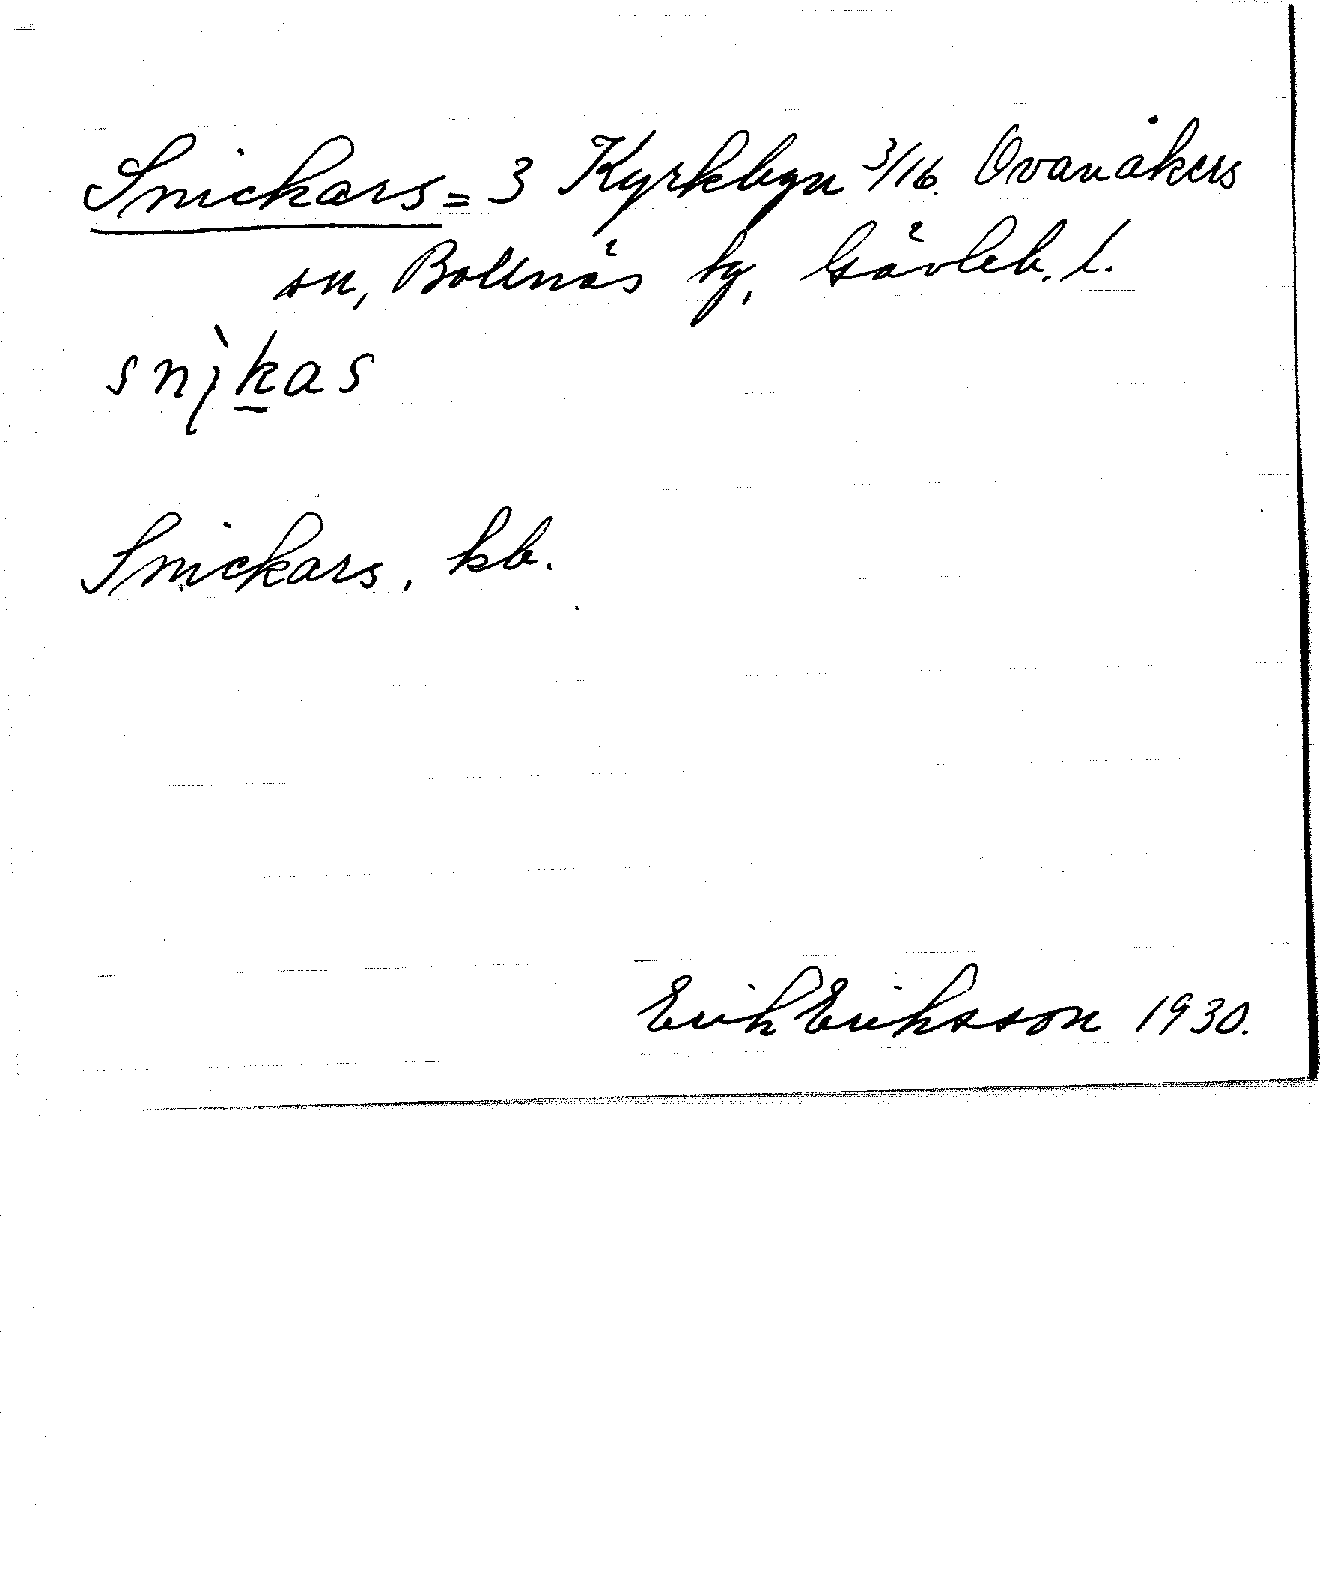 Snickars = 3 Kyrkbyn 3/16. Ovanåkers
sn, Bollnäs tg, Gävleb. l.
snìkas
Snickars, kb.
Erik Eriksson 1930.